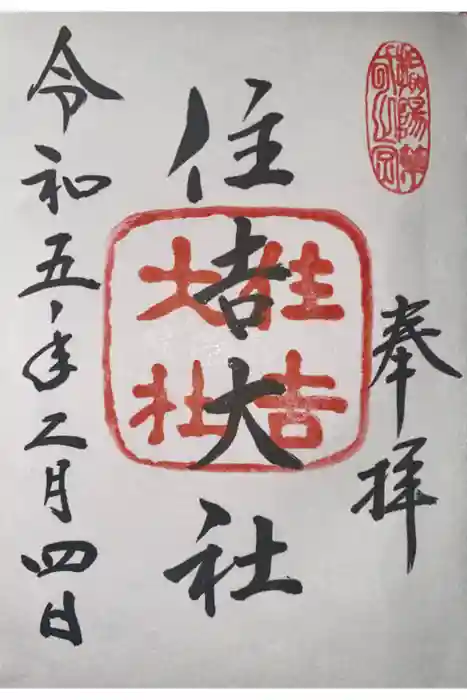 奉拝
住吉大社
住吉大社
令和五年二月四日